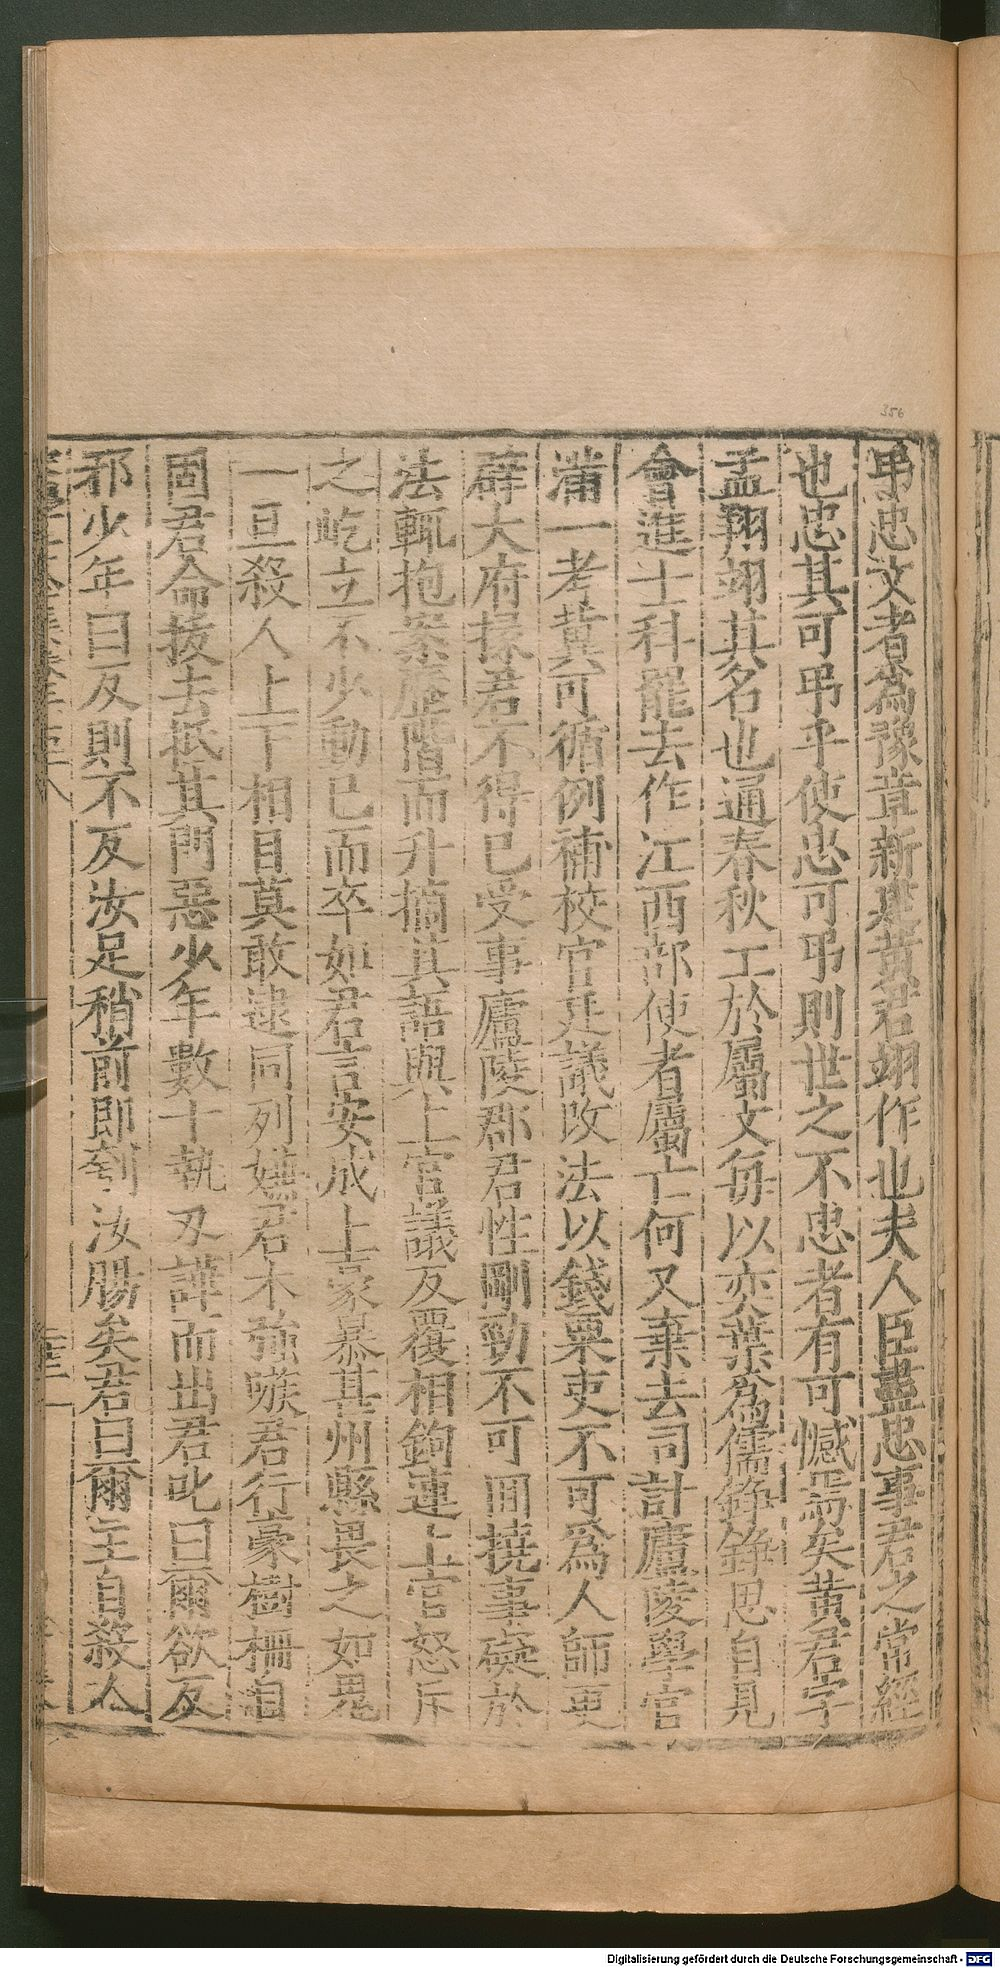 356
弔忠文者為豫章新建黄君翊作也夫人臣盡忠事君之常經
也忠其可弔乎使忠可弔則世之不忠者有可憾焉矣黄君字
孟翔翊其名也通春秋工於屬文毎以奕葉為儒錚錚思自見
會進士科罷去作江西部使者屬亡何又棄去司計廬陵學官
蒲一考冀可循例補校官廷議改法以錢粟吏不可為人師更
辟大府掾君不得已受事廬陵郡君性剛勁不可回撓事礙於
法輒抱案歷階而升摘其語與上官議反覆相鉤連上官怒斥
之屹立不少動已而卒如君言安成土豪暴其州縣畏之如鬼
一旦殺人上下相目莫敢逮同列嫉君木強嗾君行豪樹柵自
固君命拔去抵其門惡少年數十執刄譁而出君叱曰爾欲反
邪少年曰反則不反汝足稍前即刳汝腸矣君曰爾主自殺人
Digitalisierung gefördert durch die Deutsche Forschungsgemeinschaft - DFG